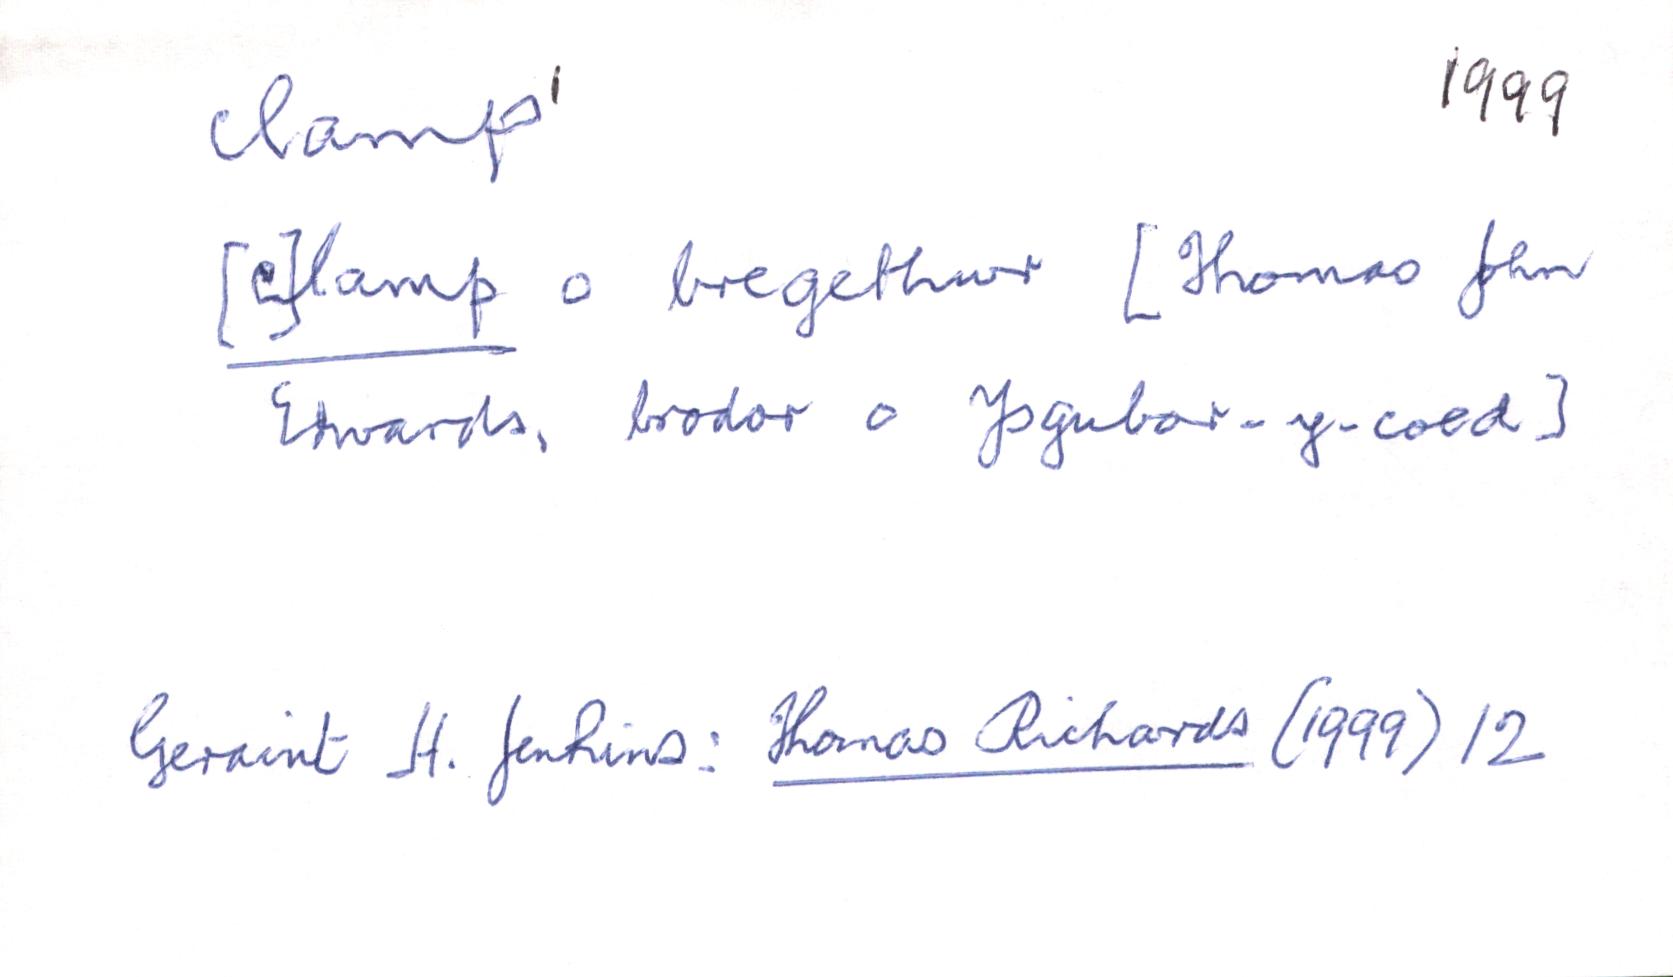 clamp¹ 1999
[c]lamp o bregethwr [Thomas John
Edwards, brodor o Ysgubor-y-coed]
Geraint H. Jenkins: Thomas Richards (1999) 12